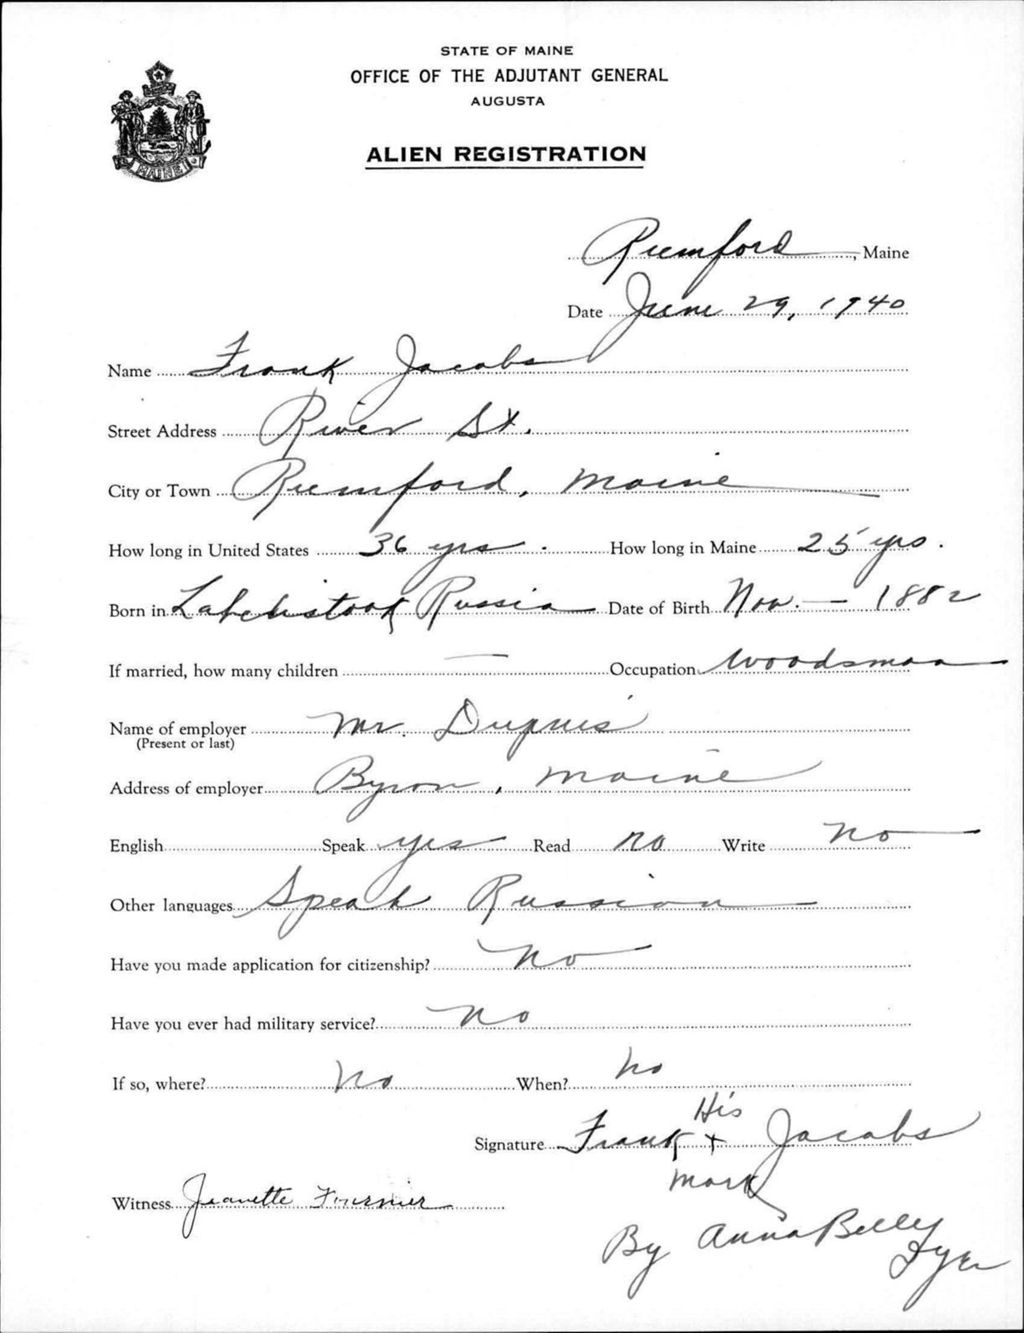 STATE OF MAINE
OFFICE OF THE ADJUTANT GENERAL
AUGUSTA
ALIEN REGISTRATION
MAINE
Rumford, Maine
Date June 29, 1940
Name Frank Jacobs
Street Address River St.
City or Town Rumford, Maine
How long in United States 36 yrs. How long in Maine 25 yrs.
Born in Russia Date of Birth Nov. — 1882
If married, how many children — Occupation Woodsman
Name of employer Mr. Dupuis
(Present or last)
Address of employer Byron, Maine
English Speak yes Read no Write no
Other languages Speak Russian
Have you made application for citizenship? No
Have you ever had military service? No
If so, where? No When? No
His
Signature Frank + Jacobs
mark
Witness Jeanette Fournier
By Anna